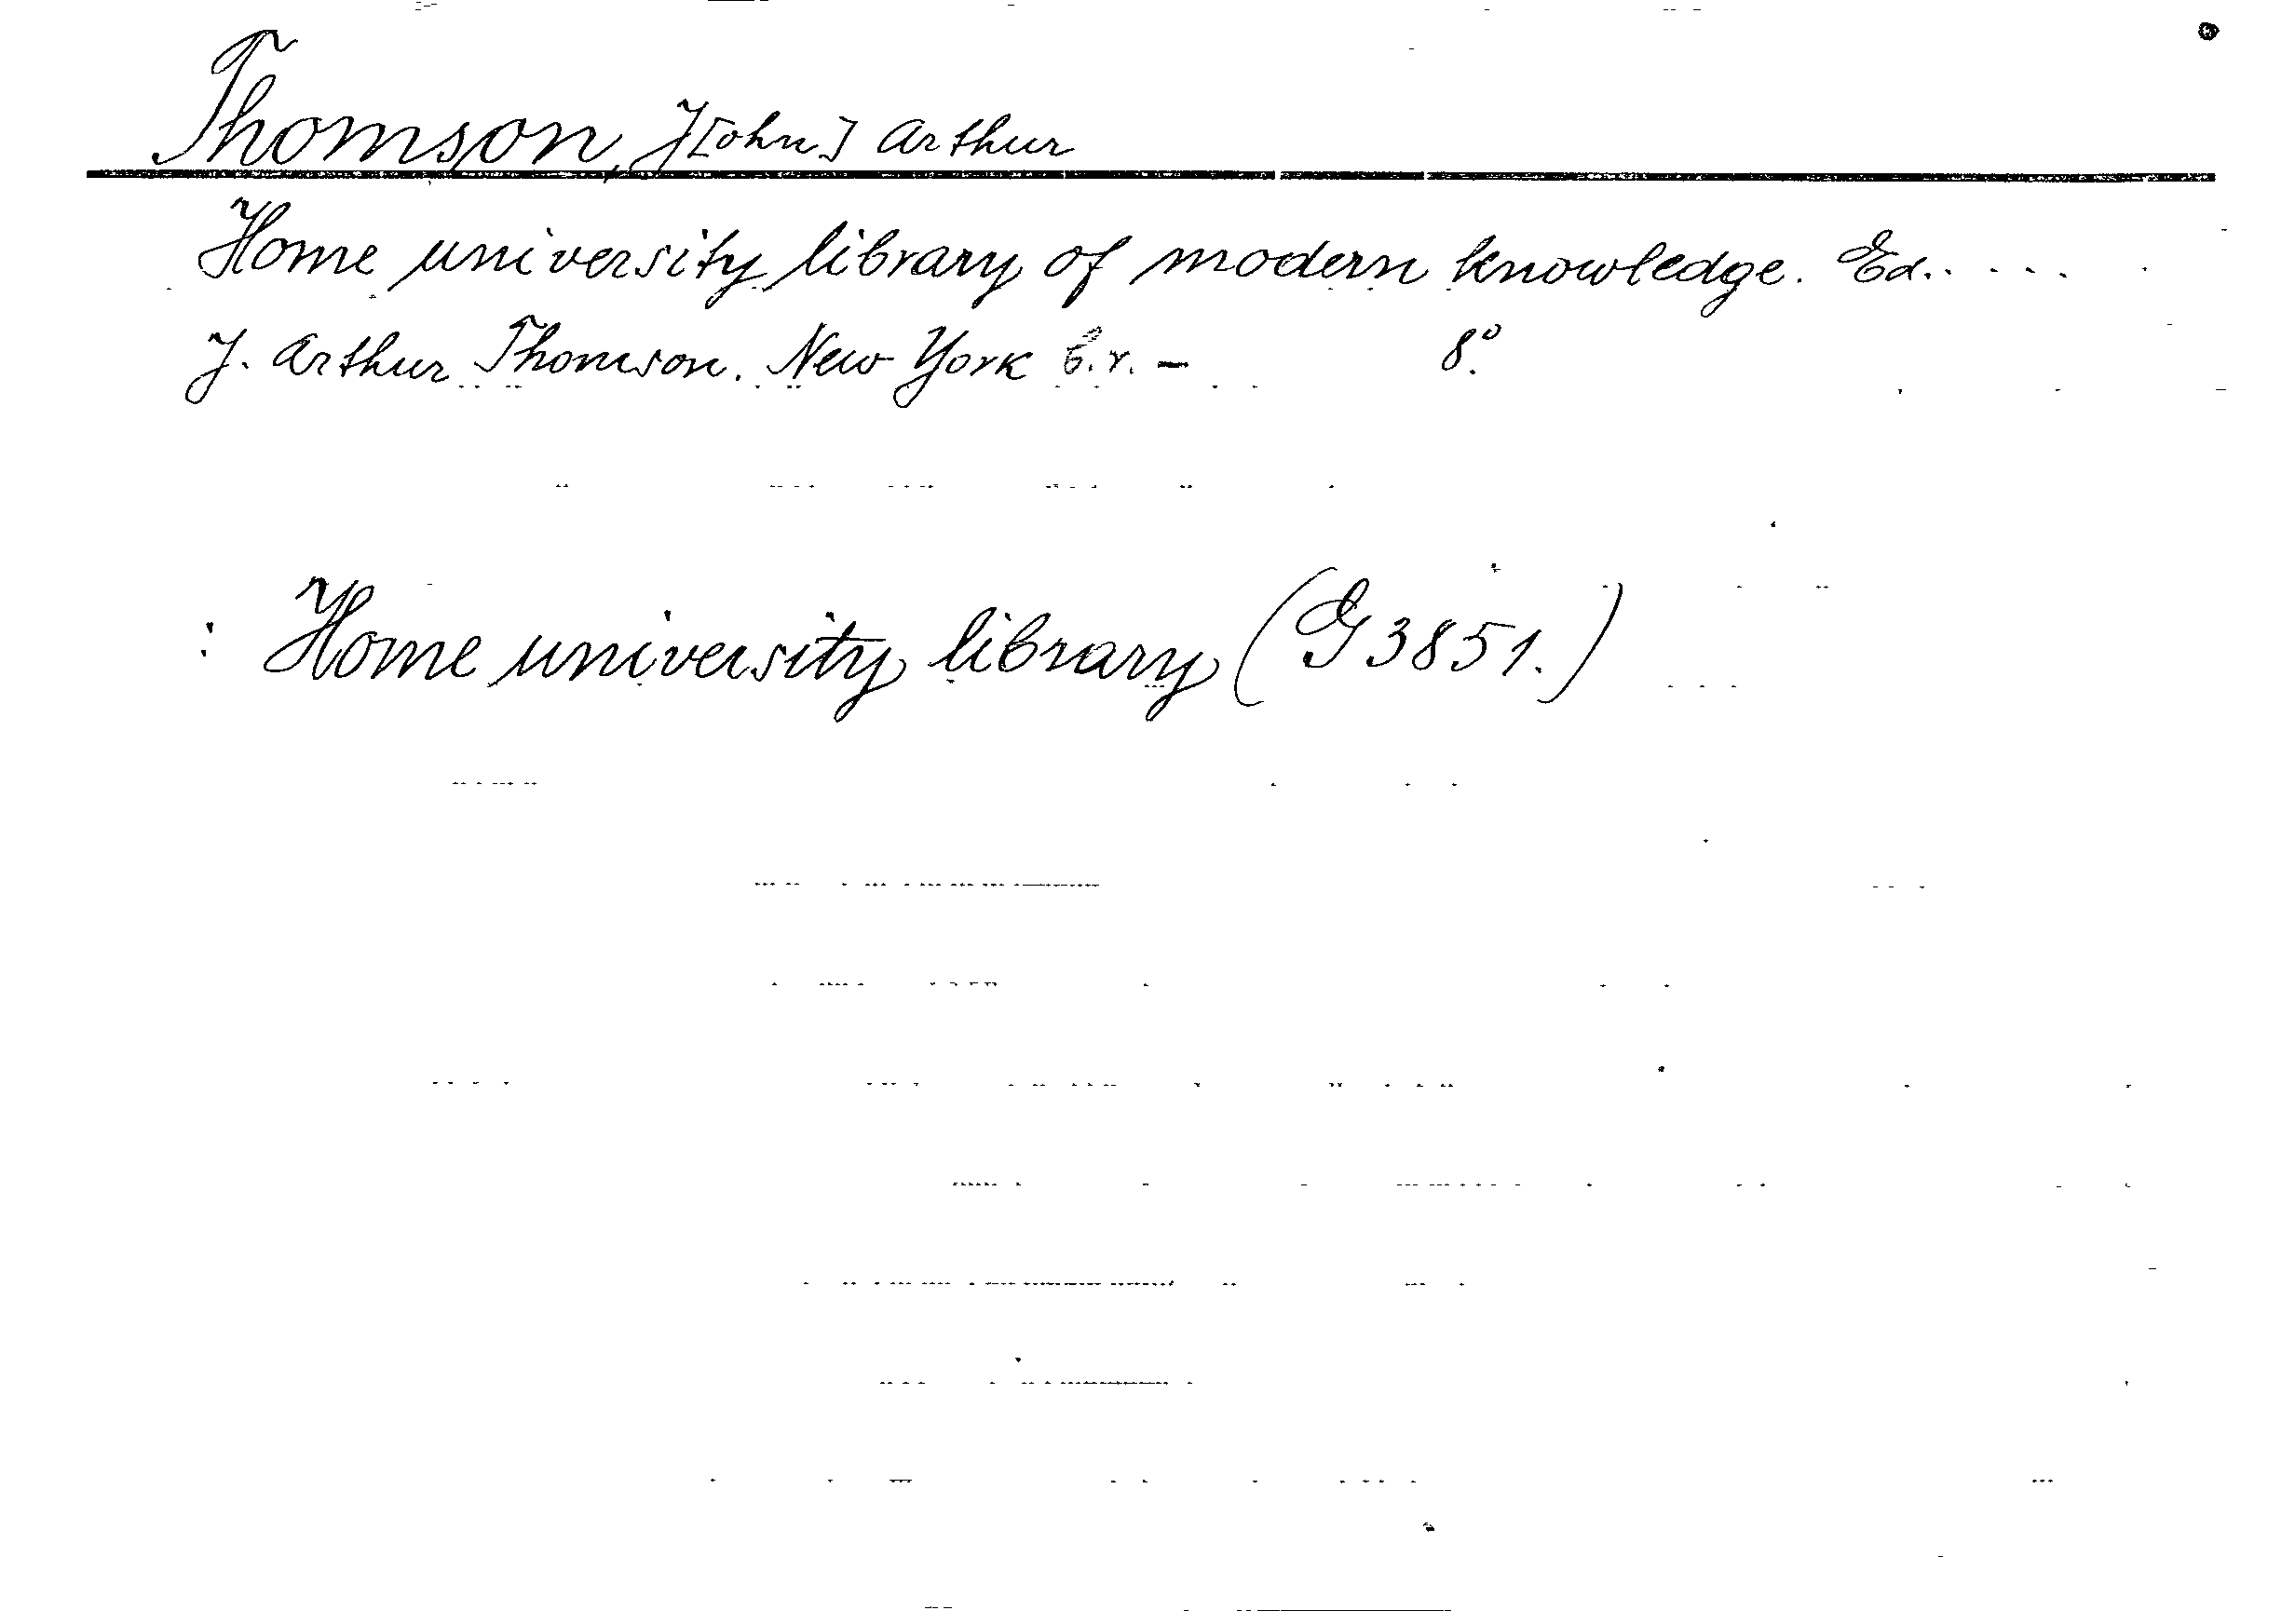 Thomson, J[ohn] Arthur
Home university library of modern knowledge. Ed. . . . .
J. Arthur Thomson. New York б.г. – 8°.
: Home university library (G 3851.)